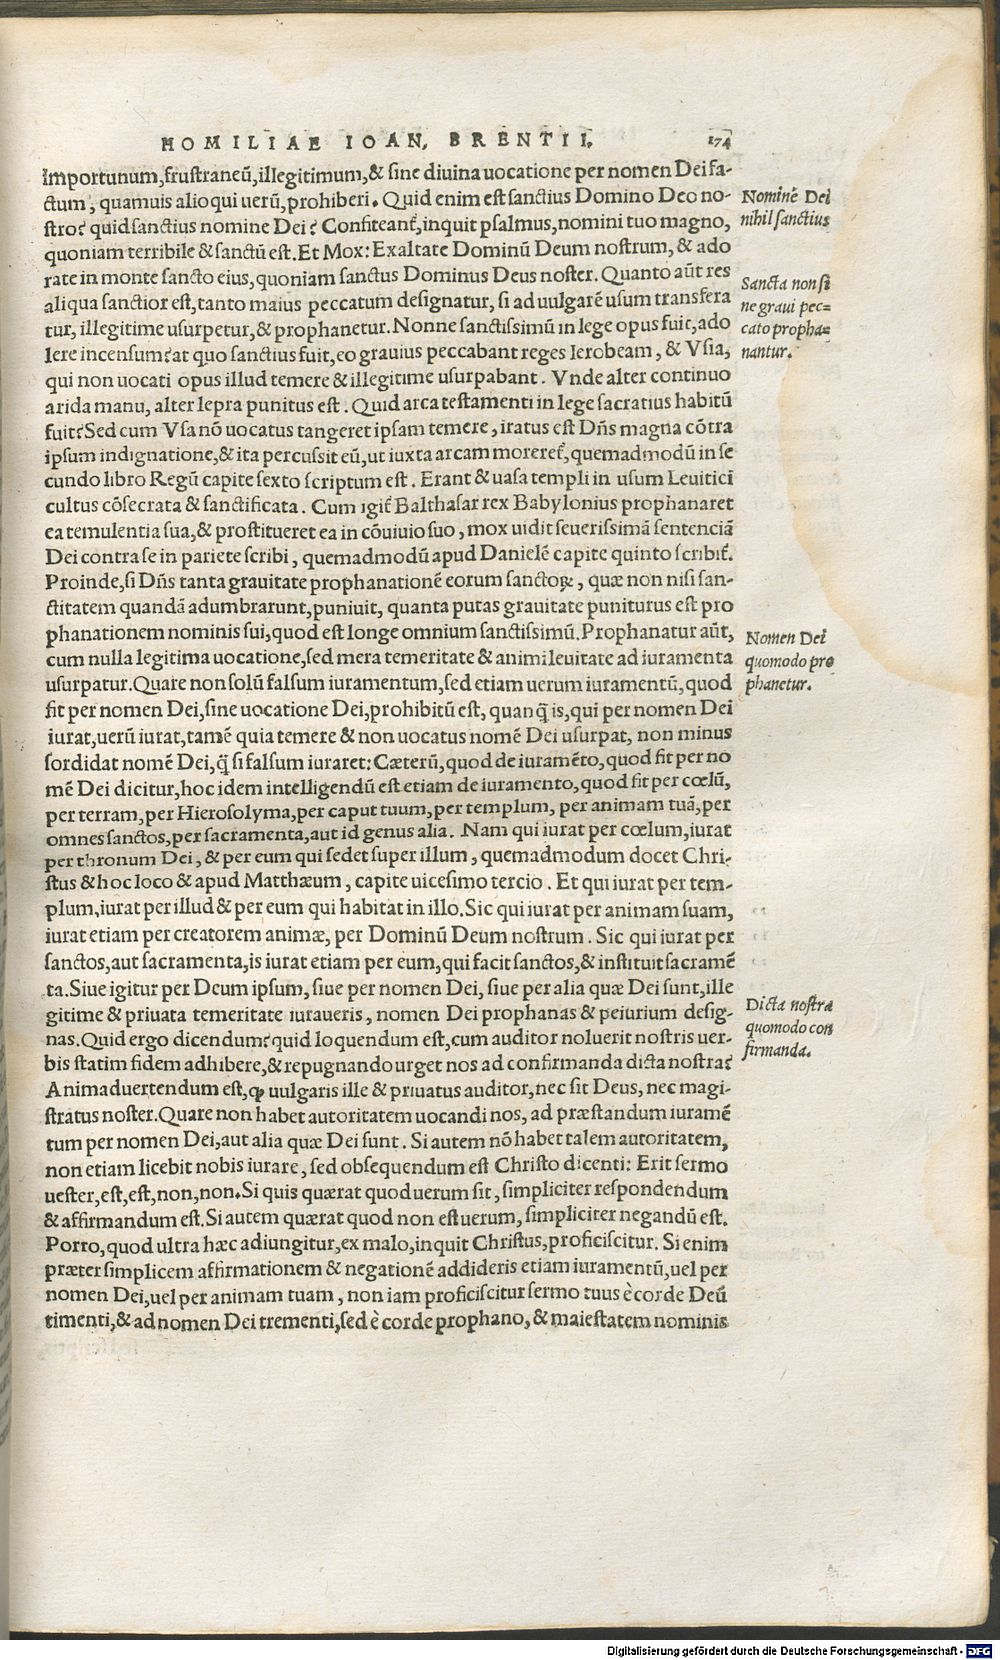 HOMILIAE IOAN, BRENTII. 174
importunum, frustraneū, illegitimum, & sine diuina uocatione per nomen Dei fa-
ctum, quamuis alioqui uerū, prohiberi. Quid enim est sanctius Domino Deo no-
stro? quid sanctius nomine Dei? Confiteant̄, inquit psalmus, nomini tuo magno,
quoniam terribile & sanctū est. Et Mox: Exaltate Dominū Deum nostrum, & ado
rate in monte sancto eius, quoniam sanctus Dominus Deus noster. Quanto aūt res
aliqua sanctior est, tanto maius peccatum designatur, si ad uulgarē usum transfera
tur, illegitime usurpetur, & prophanetur. Nonne sanctissimū in lege opus fuit, ado
lere incensum? at quo sanctius fuit, eo grauius peccabant reges Ierobeam, & Vsia,
qui non uocati opus illud temere & illegitime usurpabant. Vnde alter continuo
arida manu, alter lepra punitus est. Quid arca testamenti in lege sacratius habitū
fuit? Sed cum Vsa nō uocatus tangeret ipsam temere, iratus est Dn̄s magna cōtra
ipsum indignatione, & ita percussit eū, ut iuxta arcam moreret̄, quemadmodū in se
cundo libro Regū capite sexto scriptum est. Erant & uasa templi in usum Leuitici
cultus cōsecrata & sanctificata. Cum igit̄ Balthasar rex Babylonius prophanaret
ea temulentia sua, & prostitueret ea in cōuiuio suo, mox uidit seuerissimā sentenciā
Dei contra se in pariete scribi, quemadmodū apud Danielē capite quinto scribit̄.
Proinde, si Dn̄s tanta grauitate prophanationē eorum sanctoꝝ, quæ non nisi san-
ctitatem quandā adumbrarunt, puniuit, quanta putas grauitate puniturus est pro
phanationem nominis sui, quod est longe omnium sanctissimū. Prophanatur aūt,
cum nulla legitima uocatione, sed mera temeritate & animi leuitate ad iuramenta
usurpatur. Quare non solū falsum iuramentum, sed etiam uerum iuramentū, quod
fit per nomen Dei, sine uocatione Dei, prohibitū est, quanq̄ is, qui per nomen Dei
iurat, uerū iurat, tamē quia temere & non uocatus nomē Dei usurpat, non minus
sordidat nomē Dei, q̄ si falsum iuraret: Cæterū, quod de iuramēto, quod fit per no
mē Dei dicitur, hoc idem intelligendū est etiam de iuramento, quod fit per cœlū,
per terram, per Hierosolyma, per caput tuum, per templum, per animam tuā, per
omnes sanctos, per sacramenta, aut id genus alia. Nam qui iurat per cœlum, iurat
per thronum Dei, & per eum qui sedet super illum, quemadmodum docet Chri-
stus & hoc loco & apud Matthæum, capite uicesimo tercio. Et qui iurat per tem-
plum, iurat per illud & per eum qui habitat in illo. Sic qui iurat per animam suam,
iurat etiam per creatorem animæ, per Dominū Deum nostrum. Sic qui iurat per
sanctos, aut sacramenta, is iurat etiam per eum, qui facit sanctos, & instituit sacramē
ta. Siue igitur per Deum ipsum, siue per nomen Dei, siue per alia quæ Dei sunt, ille
gitime & priuata temeritate iuraueris, nomen Dei prophanas & peiurium desig-
nas. Quid ergo dicendum? quid loquendum est, cum auditor noluerit nostris uer-
bis statim fidem adhibere, & repugnando urget nos ad confirmanda dicta nostra?
Animaduertendum est, ꝙ uulgaris ille & priuatus auditor, nec sit Deus, nec magi-
stratus noster. Quare non habet autoritatem uocandi nos, ad præstandum iuramē
tum per nomen Dei, aut alia quæ Dei sunt. Si autem nō habet talem autoritatem,
non etiam licebit nobis iurare, sed obsequendum est Christo dicenti: Erit sermo
uester, est, est, non, non. Si quis quærat quod uerum sit, simpliciter respondendum
& affirmandum est. Si autem quærat quod non est uerum, simpliciter negandū est.
Porro, quod ultra hæc adiungitur, ex malo, inquit Christus, proficiscitur. Si enim
præter simplicem affirmationem & negationē addideris etiam iuramentū, uel per
nomen Dei, uel per animam tuam, non iam proficiscitur sermo tuus è corde Deū
timenti, & ad nomen Dei trementi, sed è corde prophano, & maiestatem nominis
Nominē Dei
nihil sanctius
Sancta non si
ne graui pec=
cato propha=
nantur.
Nomen Dei
quomodo pro
phanetur.
Dicta nostra
quomodo con
firmanda.
Digitalisierung gefördert durch die Deutsche Forschungsgemeinschaft - DFG